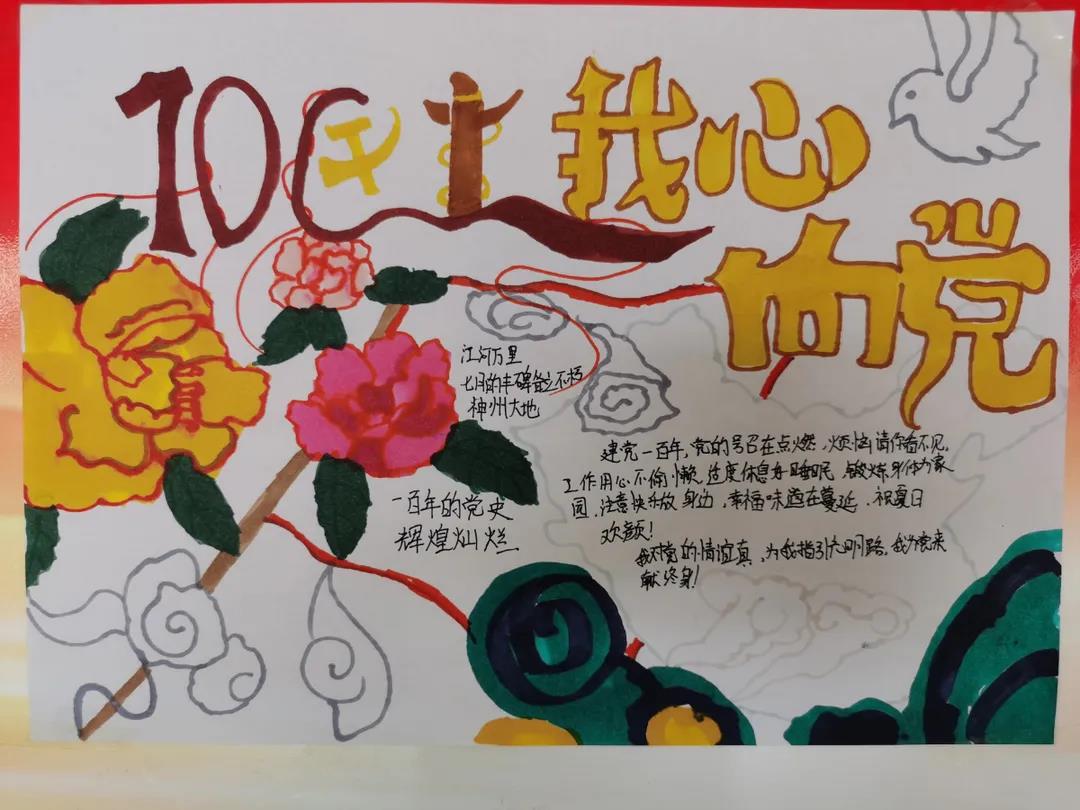 100
我心
向党
江河万里
七月的丰碑参之不朽
神州大地
一百年的党史
辉煌灿烂
建党一百年，党的号召在点燃，烦恼请你看不见，
工作用心不偷懒，适度休息好睡眠，锻炼身体为家
园，注意快乐放身边，幸福味道在蔓延，祝夏日
欢颜！
我对党的情谊真，为我指引光明路，我为党来
献终身！